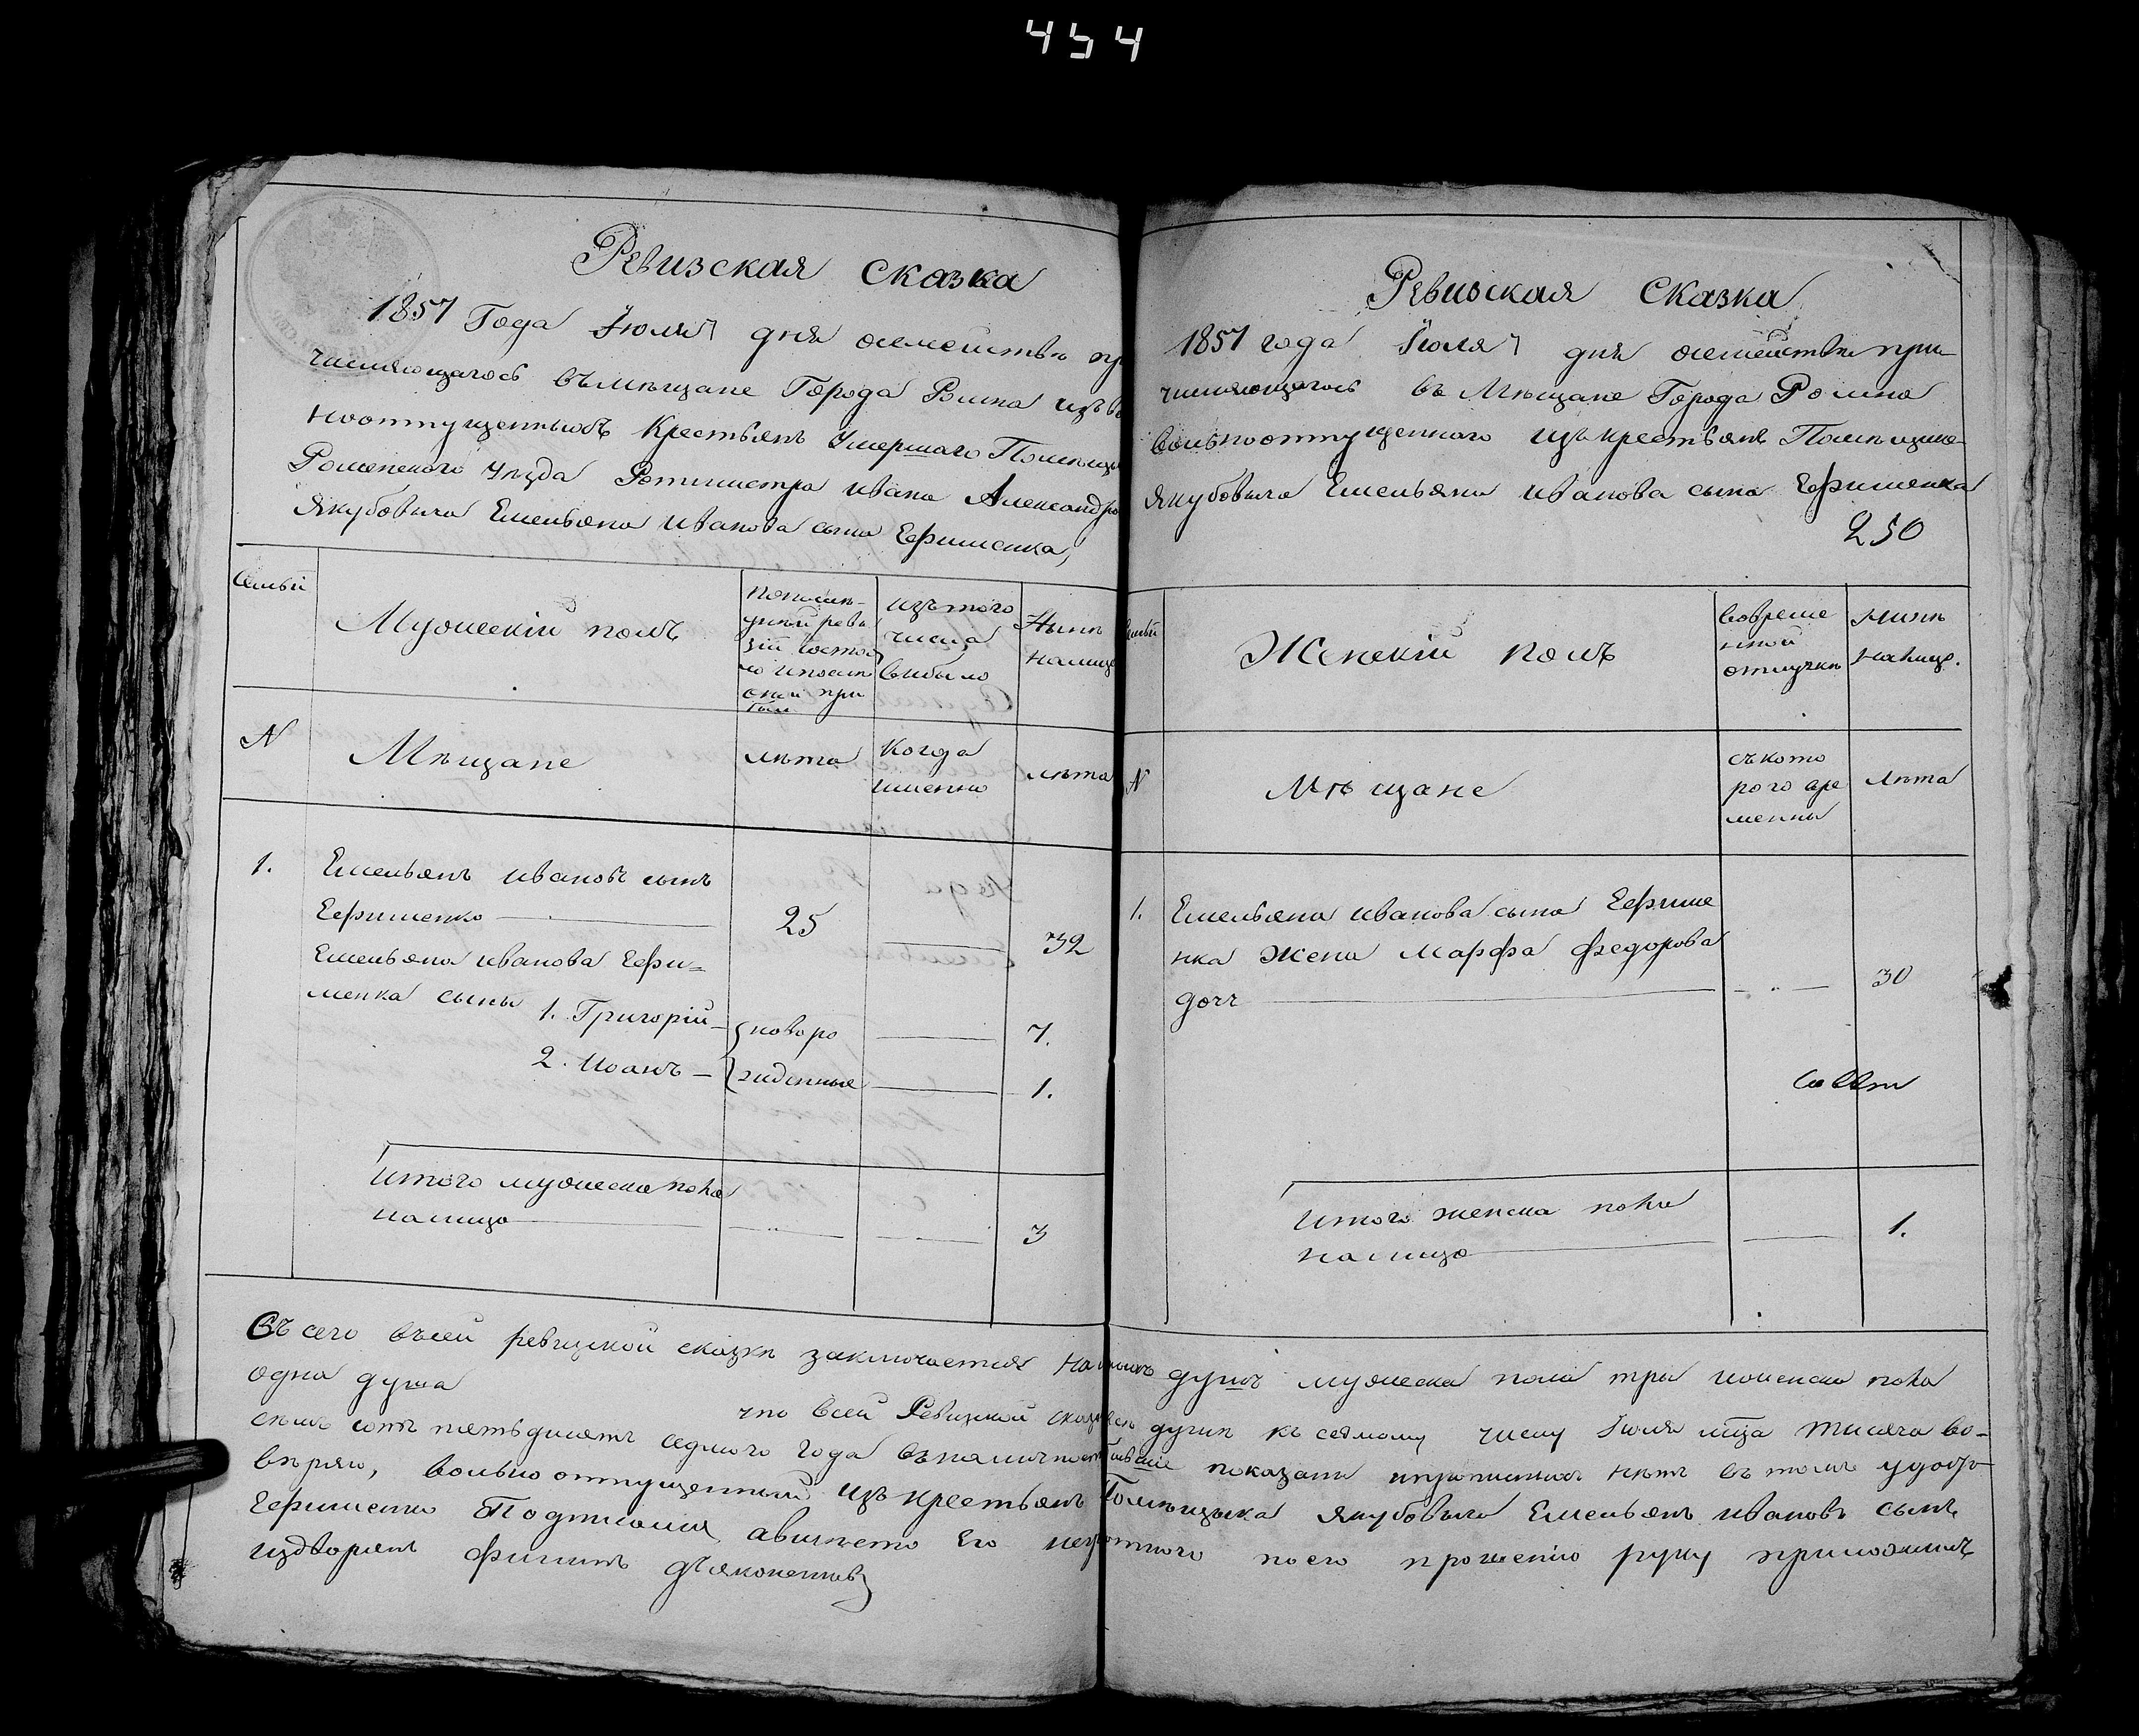 454
Ревизская сказка
1857 Года Іюля 7 дня осемействѣ пр
числяющагось въмѣщане Города Ромна изъво
ноотпущенныхъ Крестьянъ Умершаго Помѣщи
Роменского Уѣзда Ротмистра Ивана Александро
Якубовича Емельяна Иванова сына Ефименка,
Семьи
Мужескій полъ
Попослѣ-
дней реви
зіи состоя
ло и послѣ
оной при
было
изътого
числа
выбыло
Нынѣ
налицо
N
Мѣщане
лѣта
Когда
именно
лѣта
1.
Емельянъ Ивановъ сынъ
Ефименко
25
32
Емельяна Иванова Ефи=
менка сыны 1. Григорій
новоро
7.
2. Иоанъ
жденные
1.
Итого мужеска пола
налицо
3
Ревизская Сказка
1857 года Іюля 7 дня осемействѣ при
числяющагось въ Мѣщане Города Ромна
вольноотпущенного изъ крестьянъ Помѣщика
Якубовича Емельяна Иванова сына Ефименка
250
Семьи
Женскій полъ
Вовреме
нной
отлучкѣ
Нынѣ
налицо.
N
Мѣщане
съкото
рого вре
мени
Лѣта
1.
Емельяна Иванова сына Ефиме
нка Жена Марфа Федорова
дочь
30
Итого женска пола
налицо
1.
Въсего въсей ревизской сказкѣ заключается налицо душъ мужеска пола три иженска пола
одна душа
что всей Ревизской сказкѣ всѣ души къ седмому числу Іюля мца тисяча во-
семъ сотъ пятьдисятъ седмого года въналичности бывшіе показани ипрописныхъ нѣтъ въ томъ удосто
вѣряю, вольно отпущенный изъ крестьянъ Помѣщыка Якубовича Емельянъ Ивановъ сынъ
Ефименко Подписался авмѣсто Его неграмотного поего прошенію руку приложилъ
издворянъ Филипъ Дъяконенков